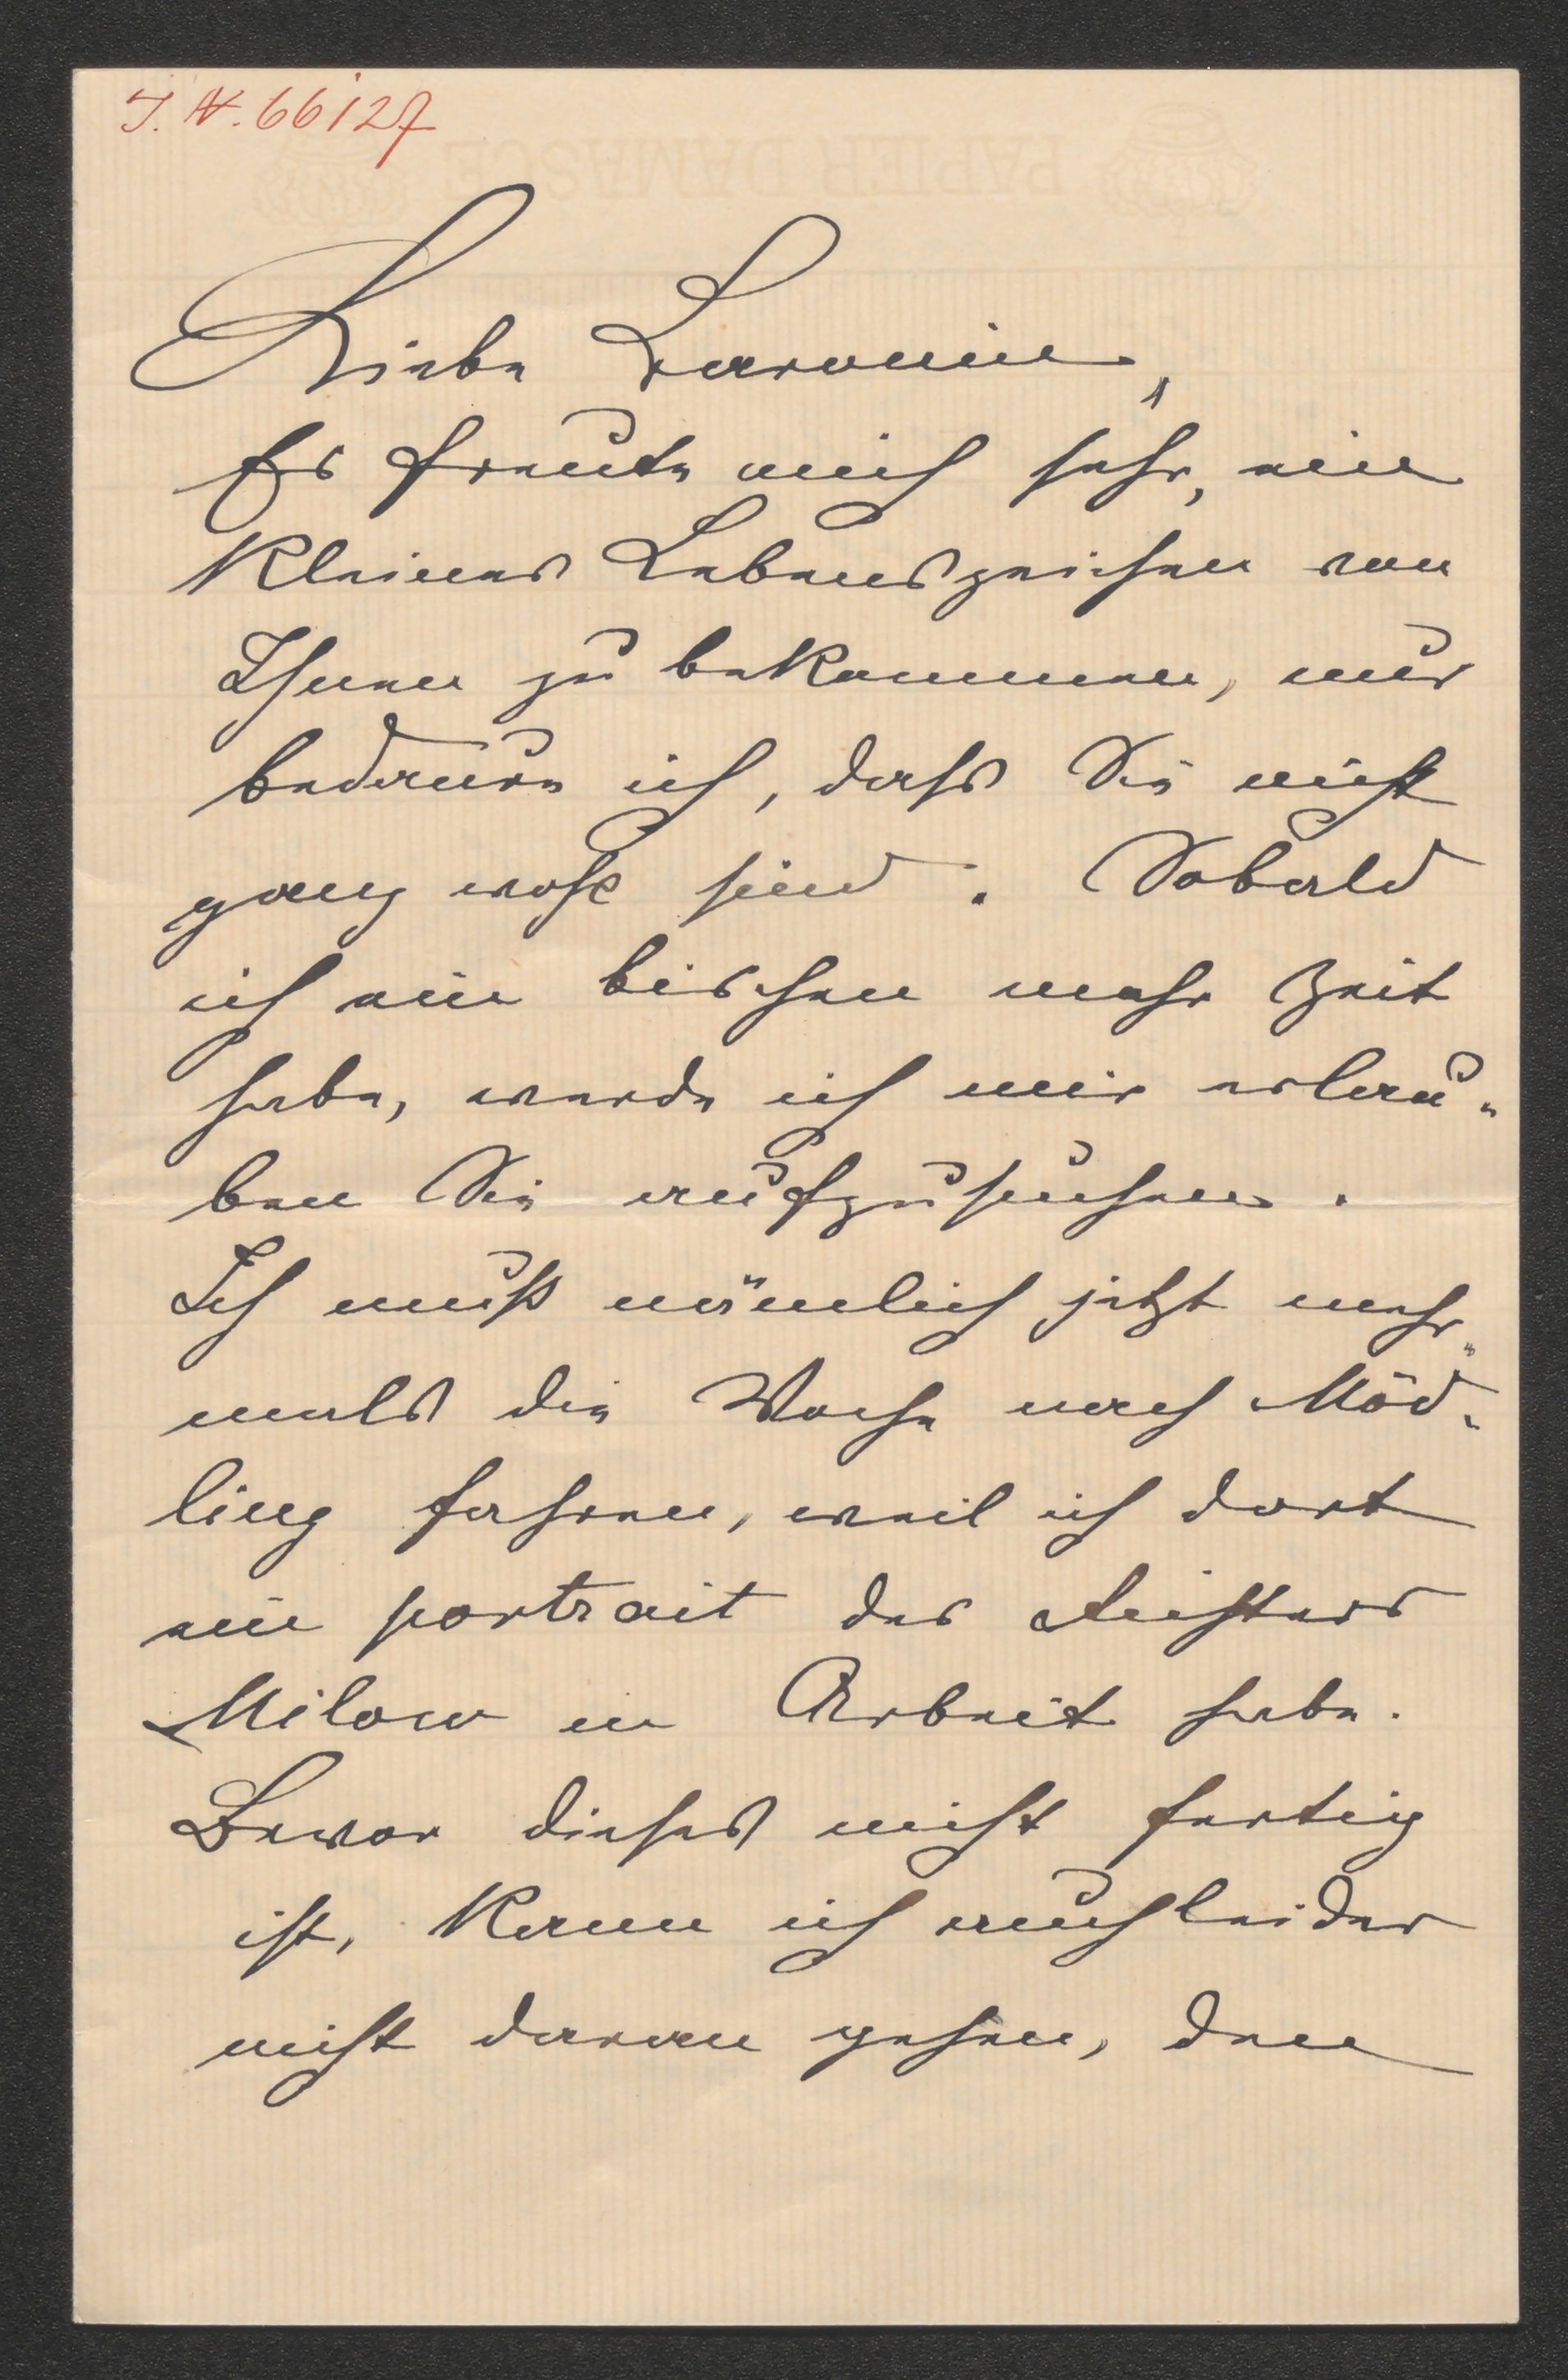 I. N. 66127
PAPIER DAMASCE
Liebe Baronin,
Es freute mich sehr, ein
kleines Lebenszeichen von
Ihnen zu bekommen, nur
bedaure ich, dass Sie nicht
ganz wohl sind. Sobald
ich ein bischen mehr Zeit
habe, werde ich mir erlau-
ben Sie aufzusuchen.
Ich muß nämlich jetzt mehr-
mals die Woche nach Möd-
ling fahren, weil ich dort
ein portrait des Dichters
Milow in Arbeit habe.
Bevor dieses nicht fertig
ist, kann ich auch leider
nicht daran gehen, den